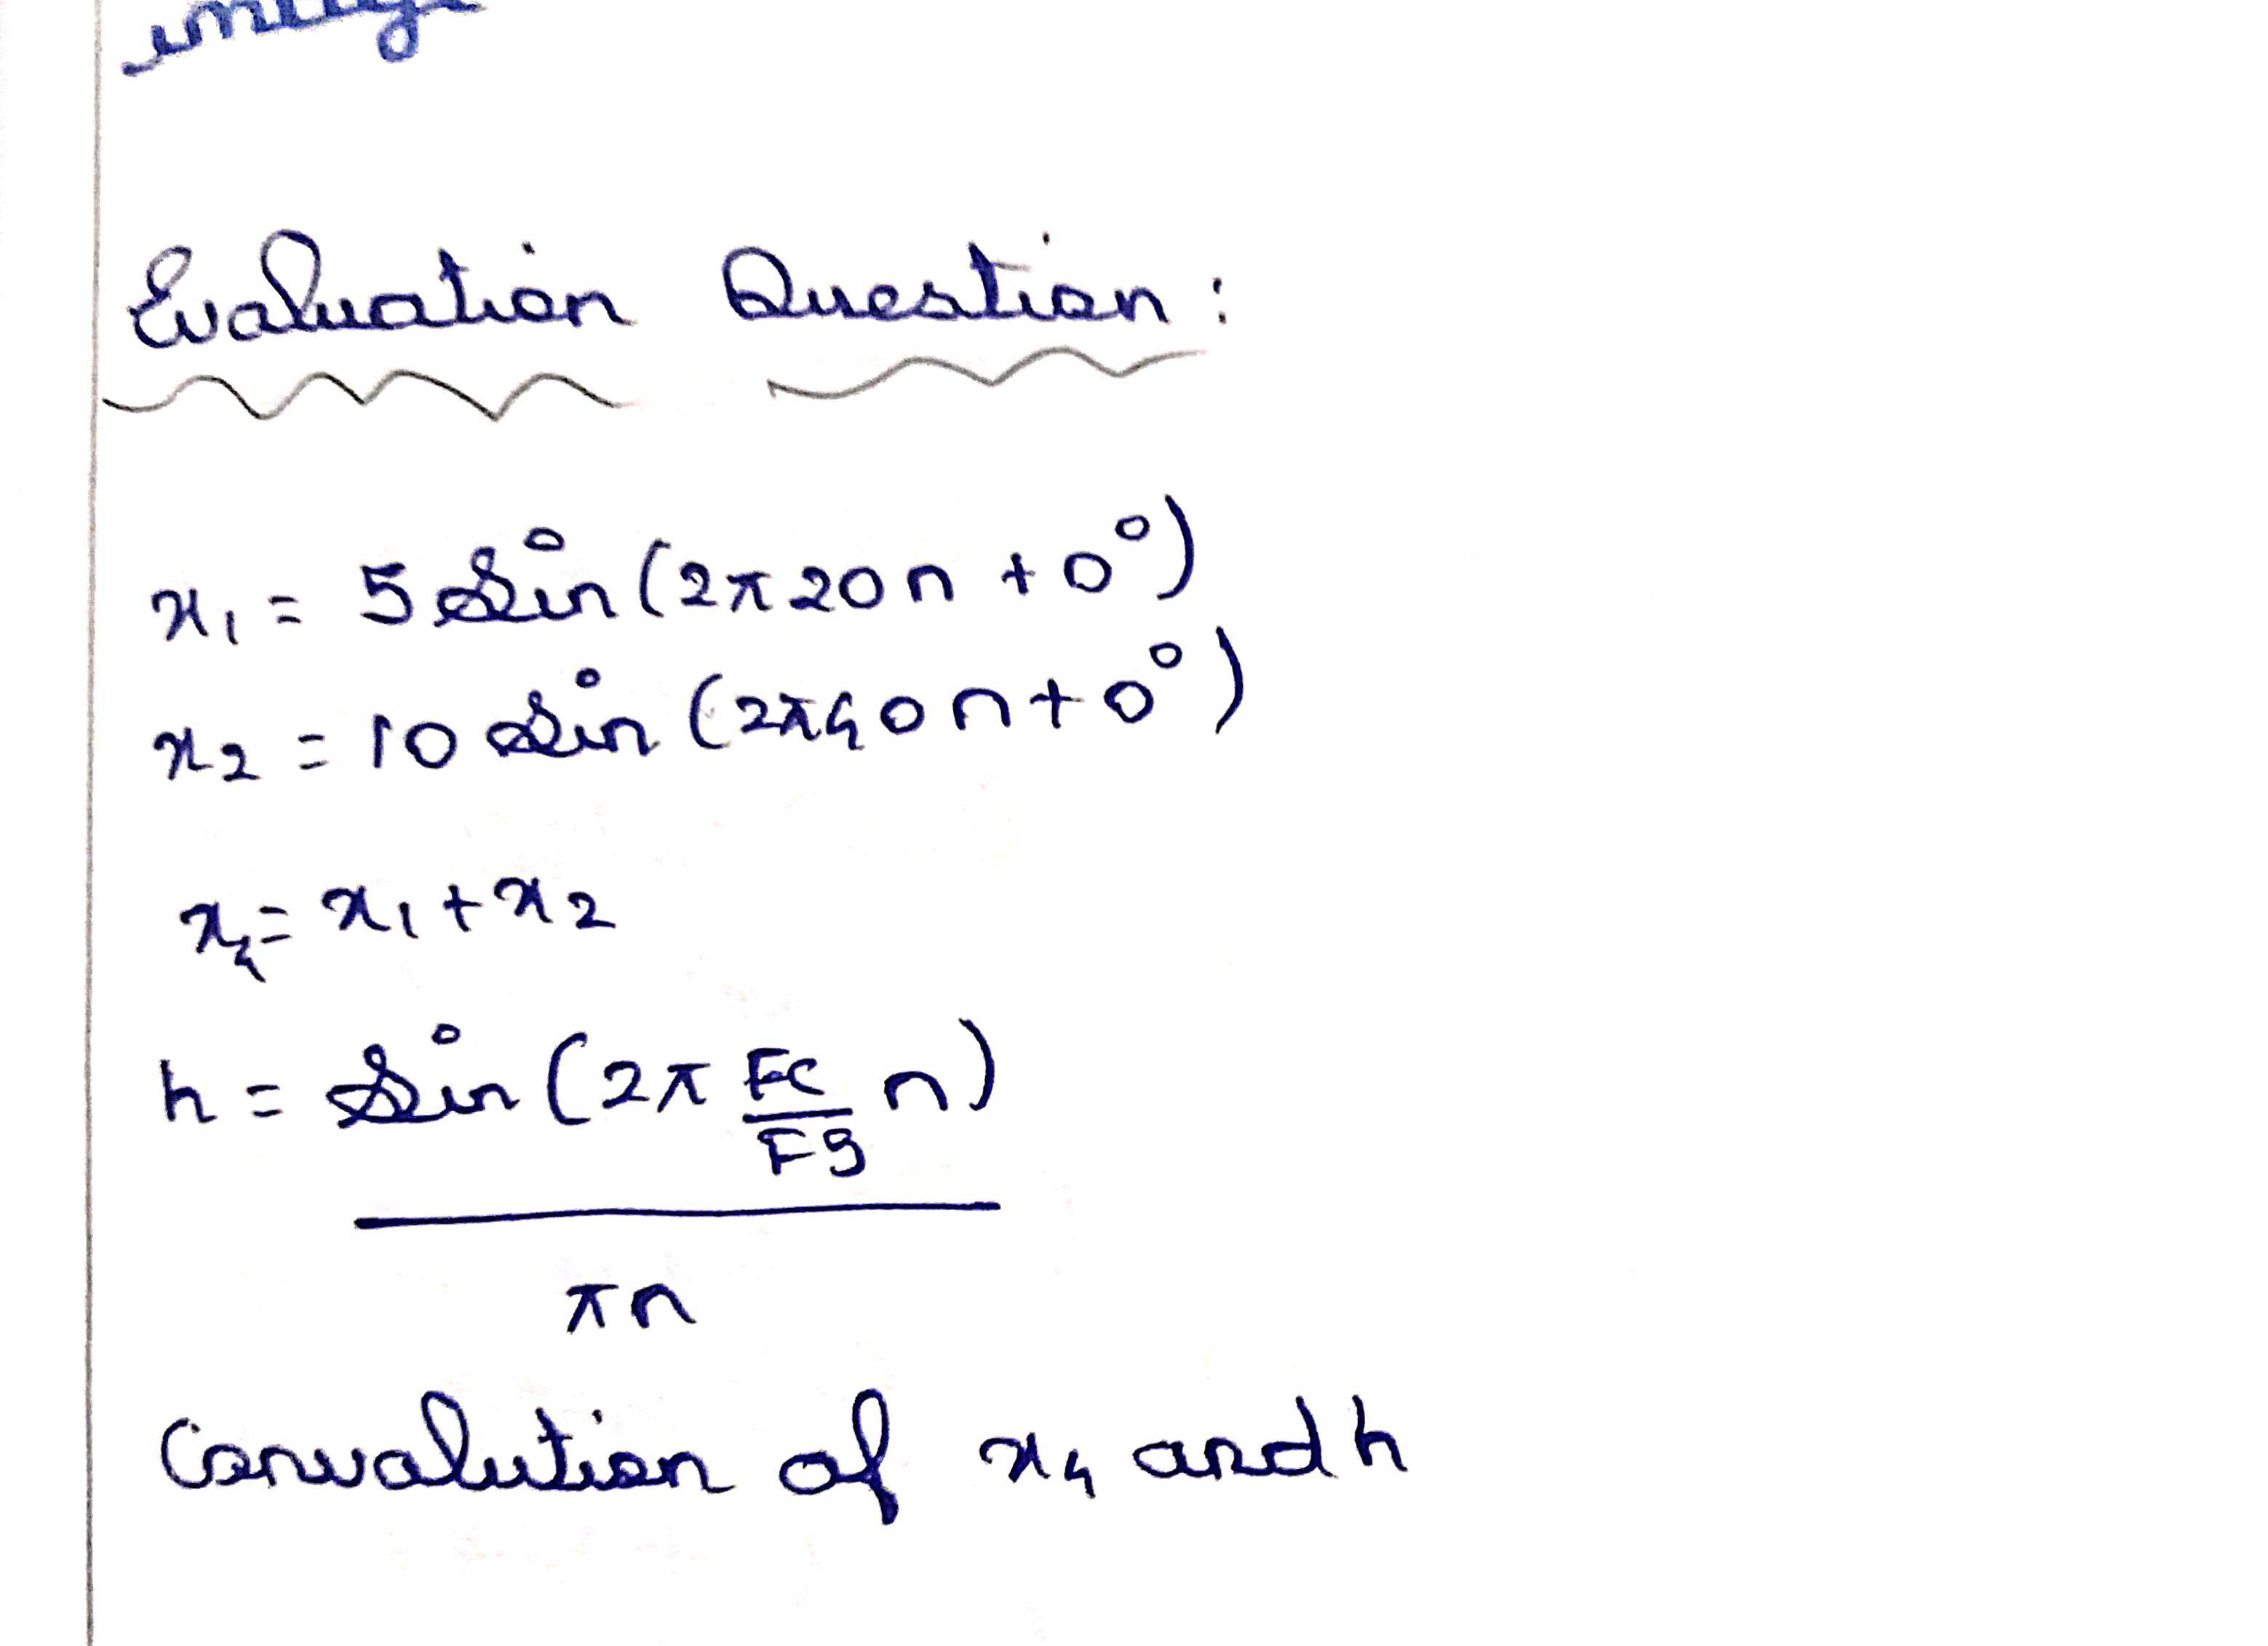 Evaluation Question:
x1 = 5 sin (2π 20 n + 0°)
x2 = 10 sin (2π 40 n + 0°)
x4 = x1 + x2
h = sin (2π Fc/Fs n)
πn
Convolution of x4 and h